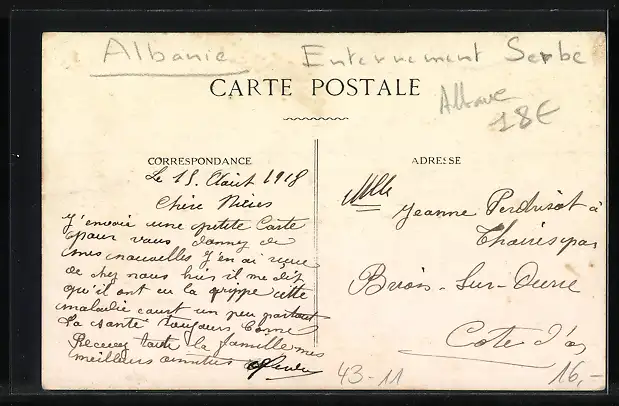 Albanie Enterrement Serbe
CARTE POSTALE
18€
CORRESPONDANCE
Le 15. Août 1918
Chère Nièces
J'envoie une petite Carte
pour vous donnez de
mes nouvelles J'en ai reçue
de chez nous hier il me dit
qu'il ont eu la grippe cette
maladie court un peu partout
la santé toujours bonne
Recevez toute la famille mes
meilleurs amitiés
ADRESSE
Mlle
Jeanne Perdrizot à
par
Brion-Sur-Ource
Cote d'or
43-11
16,-